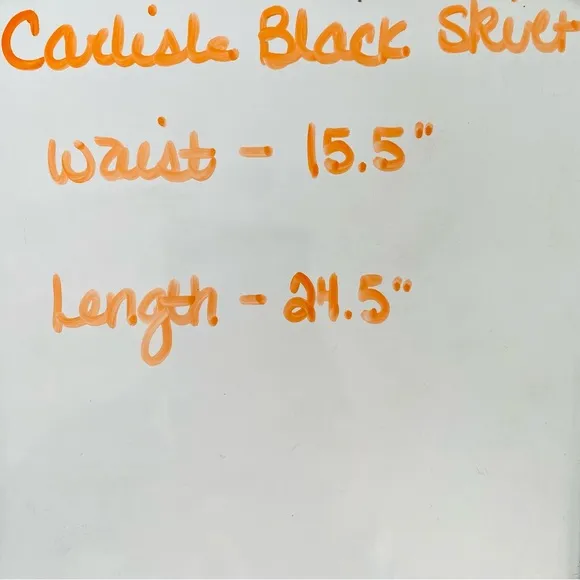 Carlisle Black Skirt
Waist - 15.5"
Length - 24.5"